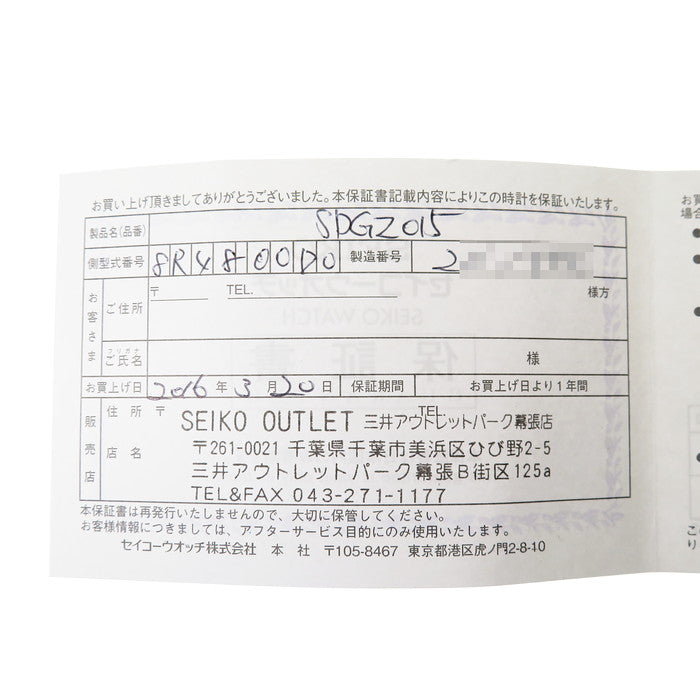 お買い上げ頂きましてありがとうございました。本保証書記載内容によりこの時計を保証いたします。
製品名(品番) SDGZ015
側型式番号 8R48-00D0 製造番号 2
お客さま
ご住所 〒 TEL. 様方
フリガナ
ご氏名 様
お買上げ日 2016年3月20日 保証期間 お買上げ日より1年間
販売店
住所 〒 TEL.
店名
SEIKO OUTLET 三井アウトレットパーク幕張店
〒261-0021 千葉県千葉市美浜区ひび野2-5
三井アウトレットパーク幕張B街区125a
TEL&FAX 043-271-1177
本保証書は再発行いたしませんので、大切に保管してください。
お客様情報につきましては、アフターサービス目的にのみ使用いたします。
セイコーウオッチ株式会社 本社 〒105-8467 東京都港区虎ノ門2-8-10
セイコーウオッチ
SEIKO WATCH
保証書
お買
場合
こ
り